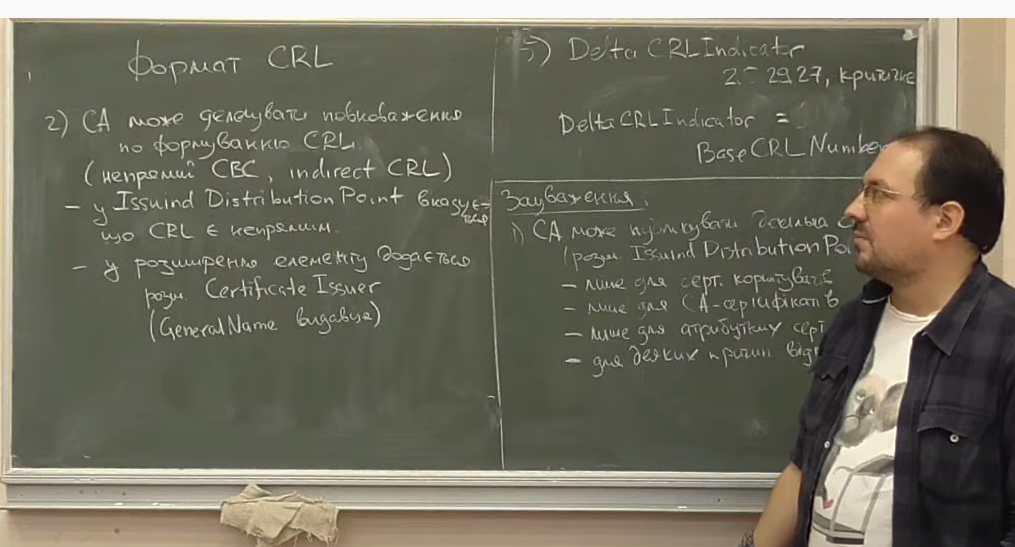 Формат CRL
2) CA може делегувати повноваження
по формуванню CRL.
(непрямий СВС, indirect CRL)
- у Issuind Distribution Point вказується
що CRL є непрямим.
- у розширення елементу додається
розш. Certificate Issuer
(GeneralName видавця)
5) Delta CRL Indicator
2.5.29.27, критичне
DeltaCRLIndicator =
BaseCRLNumber
Зауваження.
1) CA може публікувати декілька
(розш. Issuind Distribution Poi
- лише для серт. користувачів
- лише для CA-сертифікатів
- лише для атрибутних серт
- для деяких причин відк